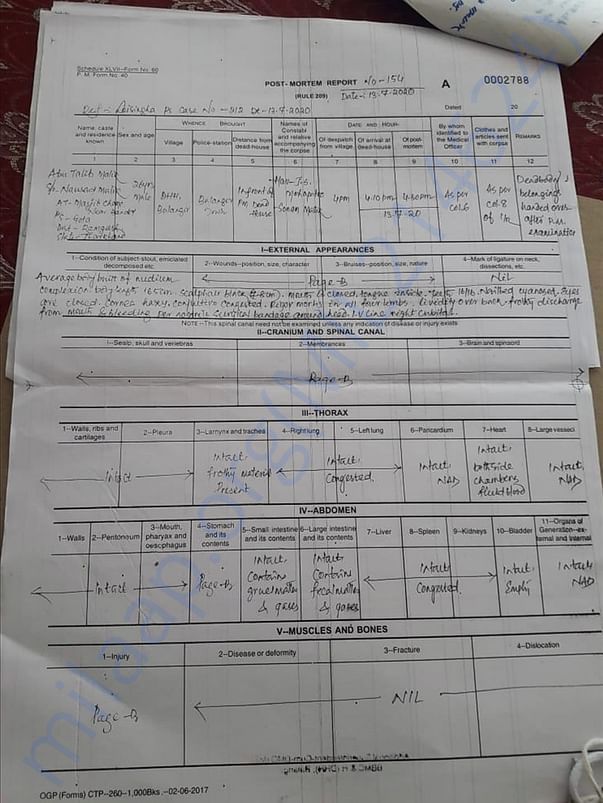 Schedule XLVII-Form No. 60
P. M. Form No. 40
POST-MORTEM REPORT No-154
A 0002788
(RULE 209) Date:-13.7.2020
Ps Case No -212 Dt-12.7.2020
Dated 20
Name, caste and residence if known
Sex and age
WHENCE BROUGHT
Village
Police-station
Distance from dead-house
Names of Constabl and relative accompanying the corpse
DATE AND HOUR-
Of despatch from village
Of arrival at dead-house
Of post-mortem
By whom identified to the Medical Officer
Clothes and articles sent with corpse
REMARKS
1 2 3 4 5 6 7 8 9 10 11 12
Abu Talib Malik
26yrs
Male
DHH,
Balangir
Balangir
Town
Infront of
PM Dead
House
4pm
4:10pm
4:30pm
13.7.20
As per
col.6
As per
col.8
of IR
Deadbody &
belonging
handed over
after P.M.
examination
I--EXTERNAL APPEARANCES
1--Condition of subject-stout, emiciated decomposed etc.
2--Wounds-position, size, character
3--Bruises-position, size, nature
4--Mark of ligature on neck, dissections, etc.
Page-B
Nil
Average body built of medium
complexion body length 165cm. scalp hair black
are closed. Cornea hazy, conjuctiva congested. Rigor mortis in all four limbs. Lividity over back, frothy discharge
from mouth & bleeding per nostrils. Surgical bandage around head. I.V line right cubital.
NOTE--This spinal canal need not be examined unless any indication of disease or injury exists
II--CRANIUM AND SPINAL CANAL
1--Scalp, skull and vertebras
2--Membrances
3--Brain and spinaord
Page-B
III--THORAX
1--Walls, ribs and cartilages
2--Pleura
3--Larnynx and trachea
4--Right lung
5--Left lung
6--Paricardium
7--Heart
8--Large vesseci
Intact
Intact,
frothy material
Present
Intact,
Congested.
Intact,
NAD
Intact,
both side
chambers
fluid blood
Intact,
NAD
IV--ABDOMEN
1--Walls
2--Peritonoum
3--Mouth, pharyax and oesophagus
4--Stomach and its contents
5--Small intestine and its contents
6--Large intestine and its contents
7--Liver
8--Spleen
9--Kidneys
10--Bladder
11--Organs of Generation--external and internal
Intact
Page-B
Intact,
Contains
gruel matter
& gases
Intact
Contains
fecal matter
& gases
Intact
Congested.
Intact,
Empty
Intact,
NAD
V--MUSCLES AND BONES
1--Injury
2--Disease or deformity
3--Fracture
4--Dislocation
Page-B
NIL
OGP (Forms) CTP--260--1,000Bks.--02-06-2017